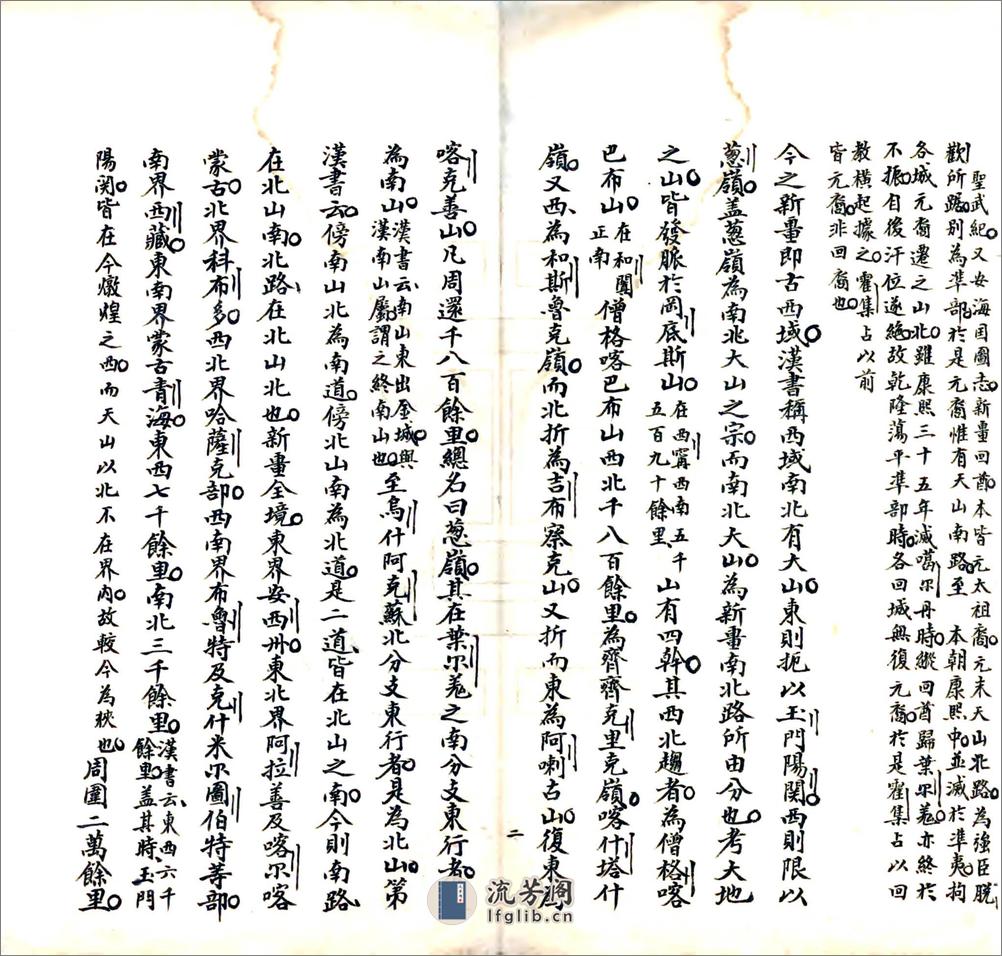 聖武紀又安海国圖志新畺回部本皆元太祖裔元末天山北路為強臣脫
歡所踞別為準部於是元裔惟有天山南路至　本朝康熙中並滅於準夷拘
各城元裔遷之山北雖康熙三十五年滅噶尔丹時縱回酋歸葉尔羌亦終於
不振自後汗位遂絕故乾隆蕩平準部時各回城無復元裔於是霍集占以回
教橫起據之霍集占以前
皆元裔非回裔也
今之新畺即古西域漢書稱西域南北有大山東則扼以玉門陽関西則限以
蔥嶺盖蔥嶺為南北大山之宗而南北大山為新畺南北路所由分也考大地
之山皆發脈於岡底斯山在西寧西南五千五百九十餘里山有四幹其西北趨者為僧格喀
巴布山在和闐正南僧格喀巴布山西北千八百餘里為齊齊克里克嶺喀什塔什
嶺又西為和斯魯克嶺而北折為吉布察克山又折而東為阿喇古山復東為
喀克善山凡周還千八百餘里總名曰蔥嶺其在葉尔羌之南分支東行者
為南山漢書云南山東出金城與漢南山屬謂之終南山也至烏什阿克蘇北分支東行者是為北山第
漢書云傍南山北為南道傍北山南為北道是二道皆在北山之南今則南路
在北山南北路在北山北也新畺全境東界安西州東北界阿拉善及喀尔喀
蒙古北界科布多西北界哈薩克部西南界布魯特及克什米尔圖伯特等部
南界西藏東南界蒙古青海東西七千餘里南北三千餘里漢書云東西六千餘里盖其時玉門
陽関皆在今燉煌之西而天山以北不在界內故較今為狹也周圍二萬餘里
二
流芳阁
lfglib.cn